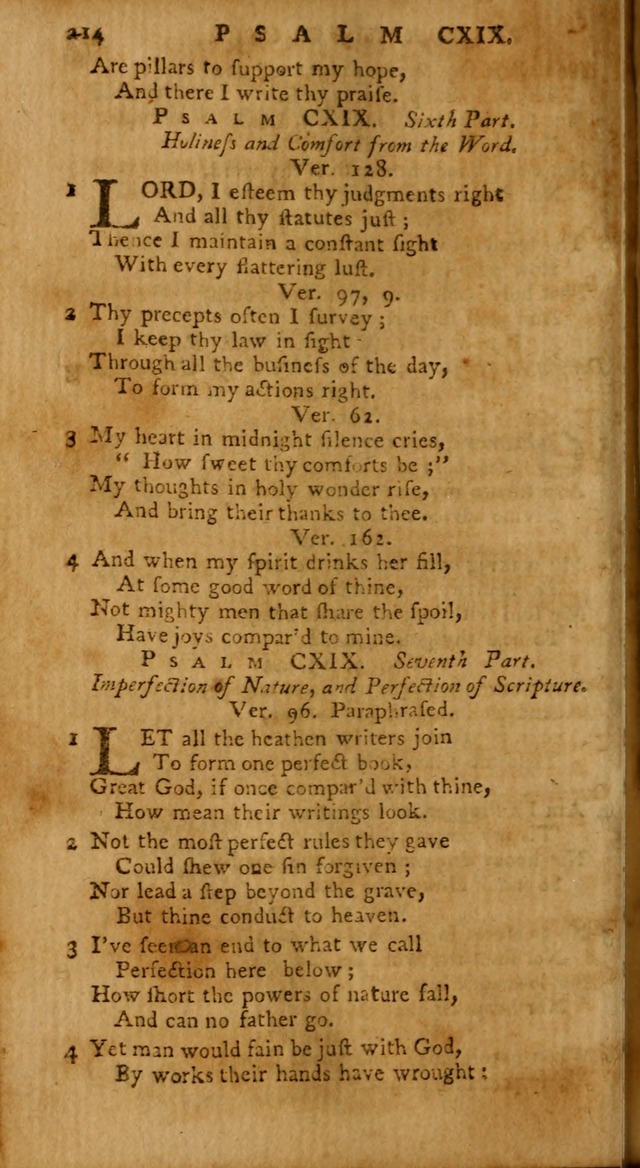 214 PSALM CXIX.
Are pillars to ſupport my hope,
And there I write thy praiſe.
PSALM CXIX. Sixth Part.
Holineſs and Comfort from the Word.
Ver. 128.
1 LORD, I eſteem thy judgments right
And all thy ſtatutes juſt ;
Thence I maintain a conſtant fight
With every flattering luſt.
Ver. 97, 9.
2 Thy precepts often I ſurvey ;
I keep thy law in ſight
Through all the buſineſs of the day,
To form my actions right.
Ver. 62.
3 My heart in midnight ſilence cries,
“ How ſweet thy comforts be ;”
My thoughts in holy wonder riſe,
And bring their thanks to thee.
Ver. 162.
4 And when my ſpirit drinks her fill,
At ſome good word of thine,
Not mighty men that ſhare the ſpoil,
Have joys compar'd to mine.
PSALM CXIX. Seventh Part.
Imperfection of Nature, and Perfection of Scripture.
Ver. 96. Paraphraſed.
1 LET all the heathen writers join
To form one perfect book,
Great God, if once compar'd with thine,
How mean their writings look.
2 Not the moſt perfect rules they gave
Could ſhew one ſin forgiven ;
Nor lead a ſtep beyond the grave,
But thine conduct to heaven.
3 I've ſeen an end to what we call
Perfection here below ;
How ſhort the powers of nature fall,
And can no father go.
4 Yet man would fain be juſt with God,
By works their hands have wrought :